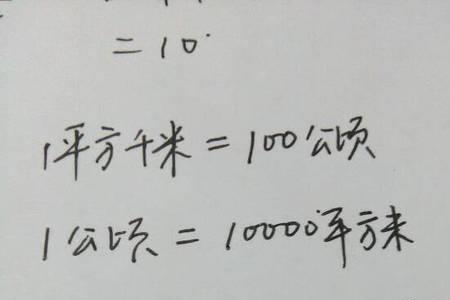 =10
1平方千米=100公顷
1公顷=10000平方米